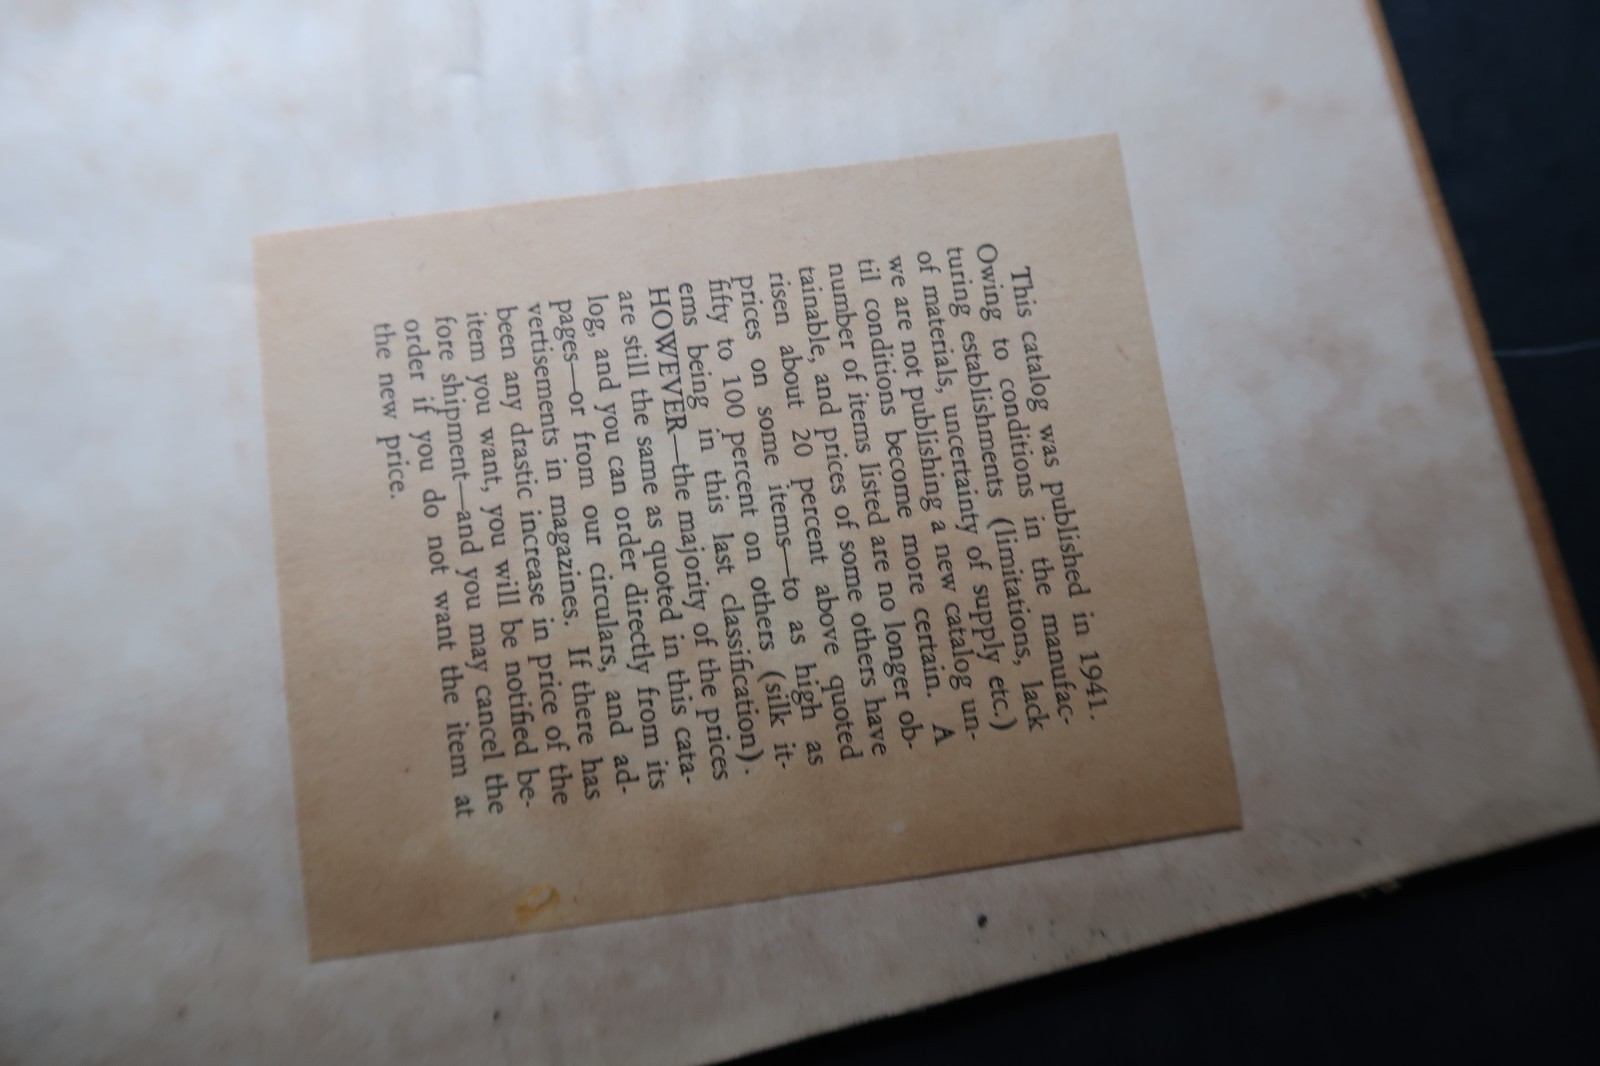 This catalog was published in 1941.
Owing to conditions in the manufac-
turing establishments (limitations, lack
of materials, uncertainty of supply etc.)
we are not publishing a new catalog un-
til conditions become more certain. A
number of items listed are no longer ob-
tainable, and prices of some others have
risen about 20 percent above quoted
prices on some items—to as high as
fifty to 100 percent on others (silk it-
ems being in this last classification).
HOWEVER—the majority of the prices
are still the same as quoted in this cata-
log, and you can order directly from its
pages—or from our circulars, and ad-
vertisements in magazines. If there has
been any drastic increase in price of the
item you want, you will be notified be-
fore shipment—and you may cancel the
order if you do not want the item at
the new price.